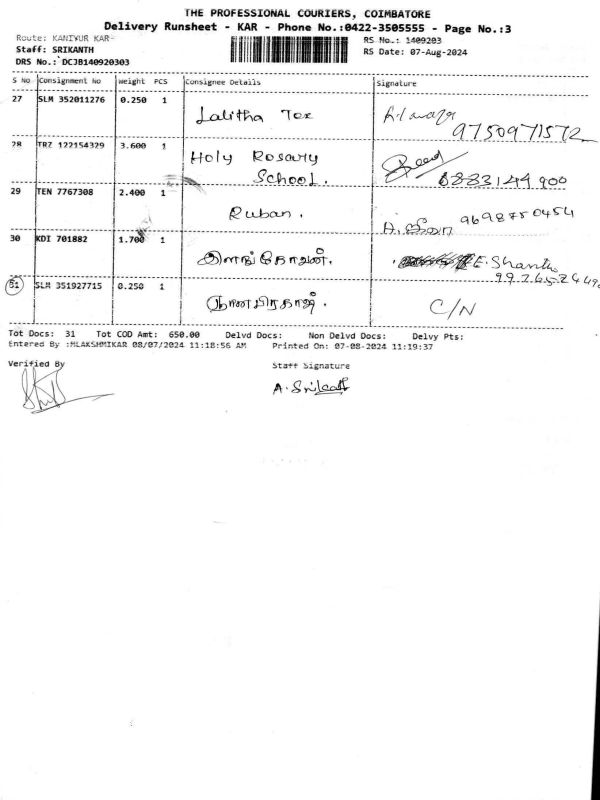 THE PROFESSIONAL COURIERS, COIMBATORE
Delivery Runsheet - KAR - Phone No.:0422-3505555 - Page No.:3
Route: KANIYUR KAR-
RS No.: 1409203
Staff: SRIKANTH
RS Date: 07-Aug-2024
DRS No.: DCJB140920303
S No Consignment No Weight PCS Consignee Details Signature
27 SLM 352011276 0.250 1 Lalitha Tex
9750971572
28 TRZ 122154329 3.600 1 Holy Rosary School.
8883144900
29 TEN 7767308 2.400 1 Ruban. 9698750454
30 KDI 701882 1.700 1 இளங்கோவன். E. Shanthi
31 SLM 351927715 0.250 1 ஞானபிரகாஷ். C/N
Tot Docs: 31 Tot COD Amt: 650.00 Delvd Docs: Non Delvd Docs: Delvy Pts:
Entered By :MLAKSHMIKAR 08/07/2024 11:18:56 AM Printed On: 07-08-2024 11:19:37
Verified By Staff Signature
A. Srikanth